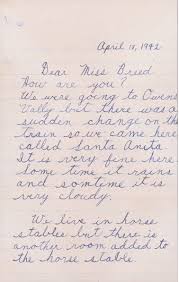 April 15, 1942
Dear Miss Breed
How are you?
We were going to Owens
Vally but there was a
sudden change on the
train so we came here
called Santa Anita
It is very fine here
Some time it rains
and somtime it is
very cloudy.
We live in horse
stables but there is
another room added to
the horse stable.